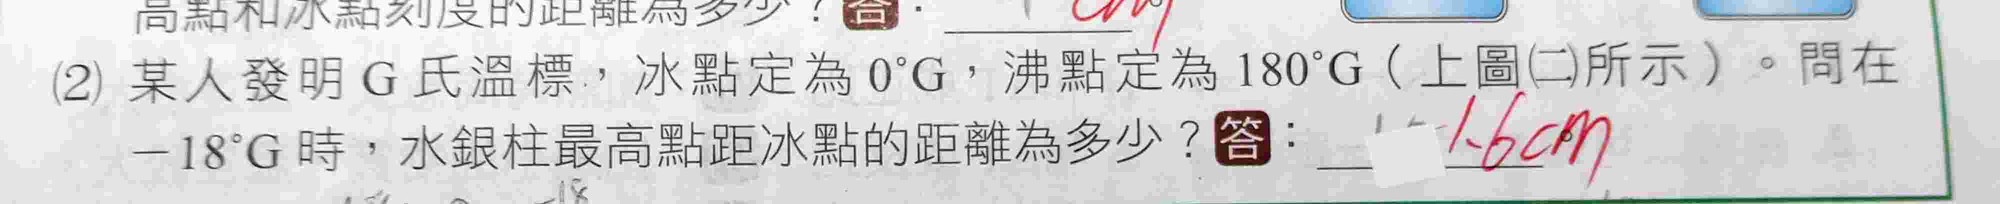 高點和冰點刻度的距離為多少？答：cm
(2) 某人發明 G 氏溫標，冰點定為 0°G，沸點定為 180°G（上圖㈡所示）。問在
－18°G 時，水銀柱最高點距冰點的距離為多少？答：1.6cm
-18